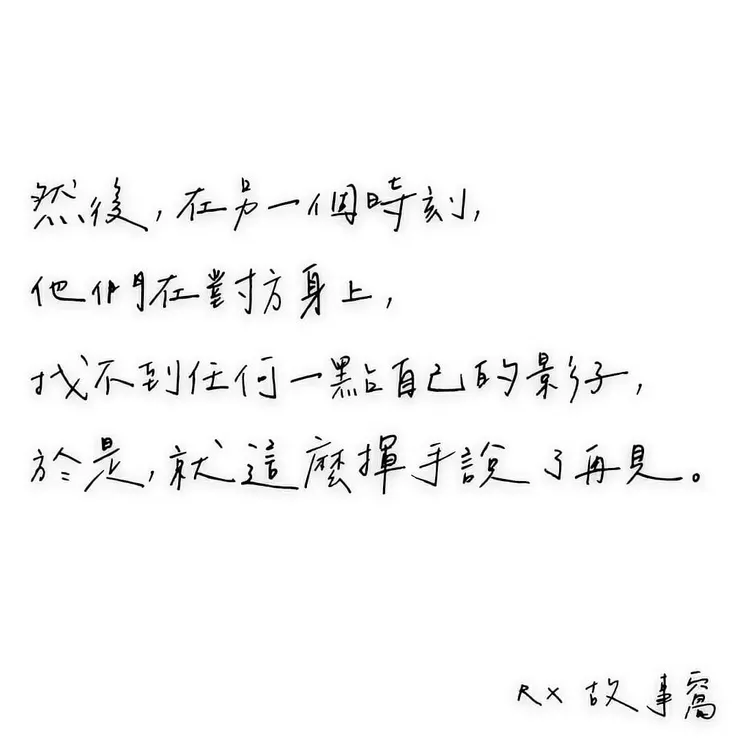 然後,在另一個時刻,
他們在對方身上,
找不到任何一點自己的影子,
於是,就這麼揮手說了再見。
RX 故事窩